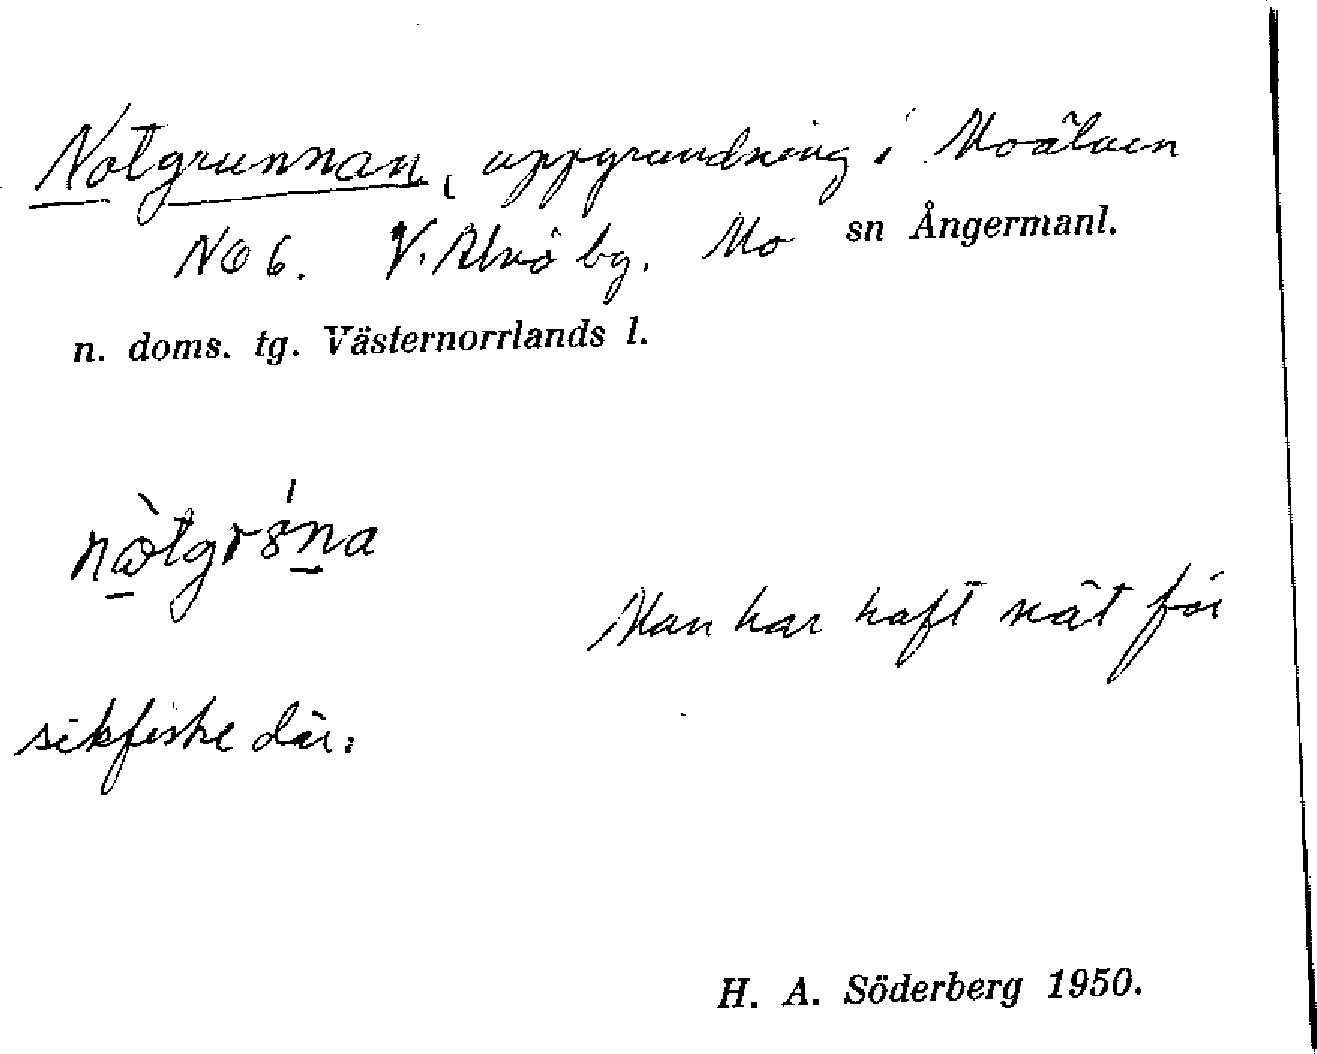 Notgrunnan, uppgrundning i Moälven
NO 6. V. Alnö by. Mo sn Ångermanl.
n. doms. tg. Västernorrlands l.
Man har haft nät för
sikfiske där.
H. A. Söderberg 1950.